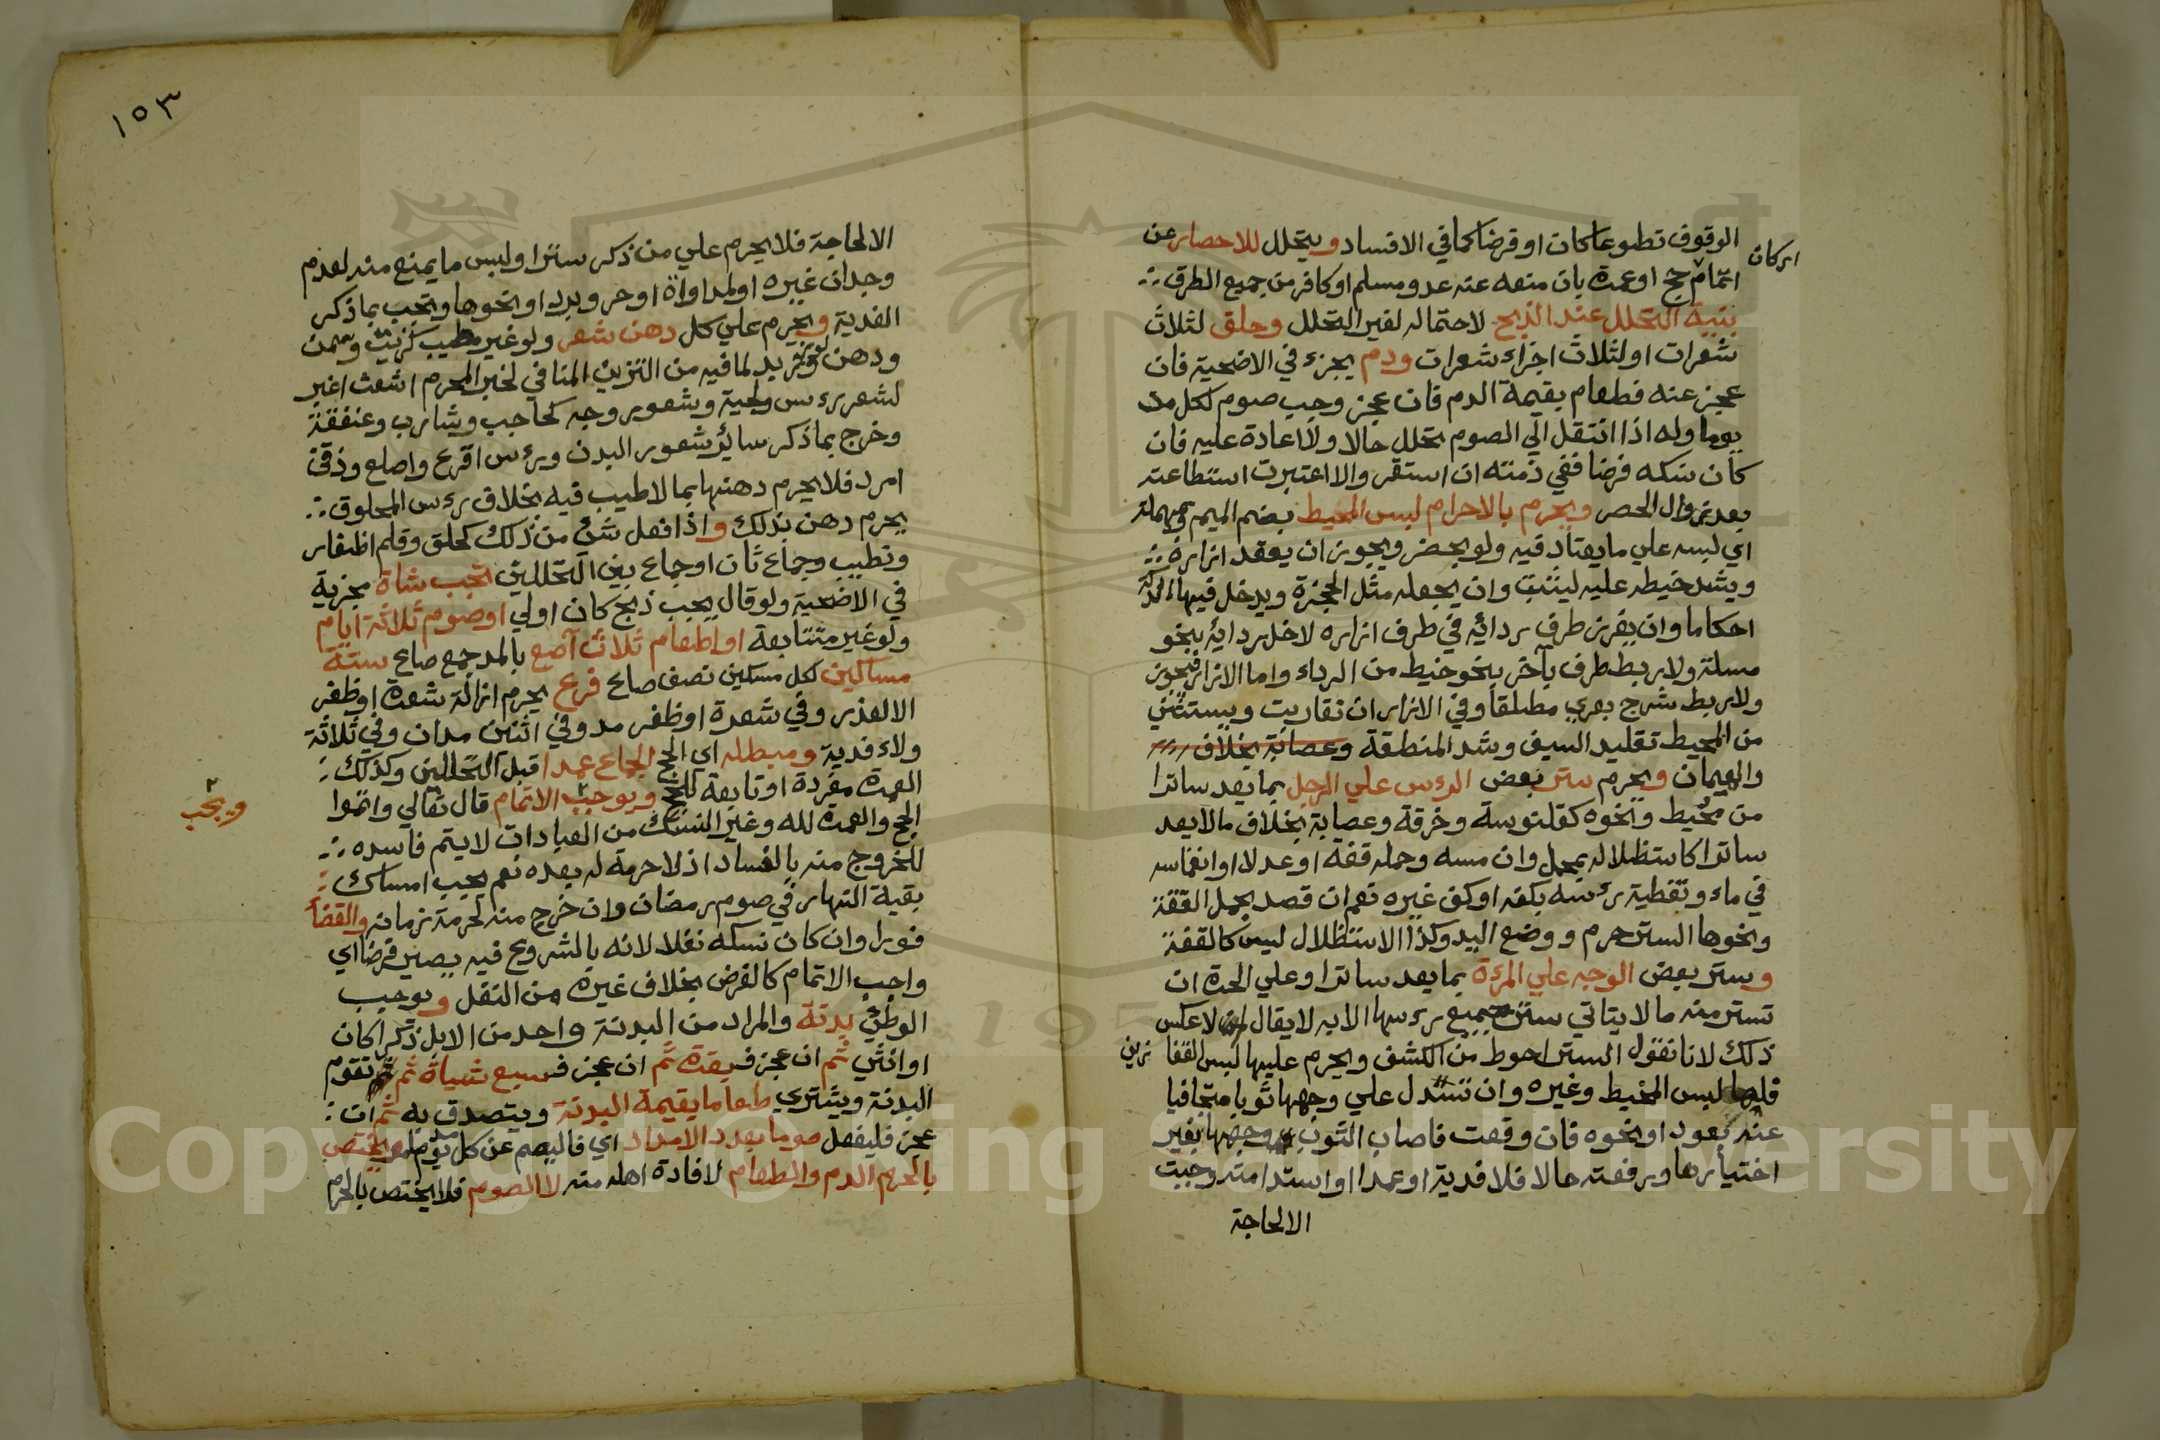 الوقوف تطوعا كان او فرضا كما في الافساد ويتحلل للاحصار عن
اركان
اتمام حج او عمرة بان منعه عنه عدو مسلم او كافر من جميع الطرق
بنية التحلل عند الذبح لاحتماله لغير التحلل وحلق لثلاث
شعرات او لثلاث اجزاء شعرات ودم يجزء في الاضحية فان
عجز عنه فطعام بقيمة الدم فان عجز وجب صوم لكل مد
يوما وله اذا انتقل الي الصوم تحلل حالا ولا اعادة عليه فان
كان نسكه فرضا ففي ذمته ان استقر والا اعتبرت استطاعته
بعد زوال الحصر ويحرم بالاحرام لبس المحيط بضم الميم وبمهملة
اي لبسه علي ما يعتاد فيه ولو بحضر ويجوز ان يعقد ازاره
ويشد خيطه عليه ليثبت وان يجعله مثل الحجزة ويدخل فيها التكة
احكاما وان يغرز طرف ردائه في طرف ازاره لا خل ردائه بنحو
مسلة ولا ربط طرف بآخر بنحو خيط من الرداء واما الازار فيجوز
ولا ربط شرج بعري مطلقا وفي الازار ان تقاربت ويستثني
من المحيط تقليد السيف وشد المنطقة وعصابة بخلاف
والهيمان ويحرم ستر بعض الرءس علي الرجل بما يعد ساترا
من محيط ونحوه كقلنوسة وخرقة وعصابة بخلاف مالا يعد
ساترا كاستظلاله بمحمل وان مسه وحمله قفة او عدلا او انغماسه
في ماء وتغطية رءسه بكفه او كف غيره نعم ان قصد بحمل القفة
ونحوها الستر حرم ووضع اليد وكذا الاستظلال ليس كالقفة
وستر بعض الوجه علي المرءة بما يعد ساترا وعلي الحرة ان
تستر منه مالا يتاتي ستر جميع رءسها الا به لا يقال لا عكس
ذلك لانا نقول الستر احوط من الكشف ويحرم عليها لبس القفا
زين
فلها لبس المخيط وغيره وان تسدل علي وجهها ثوبا متجافيا
عنه بعود او نحوه فان وقعت فاصاب الثوب وجهها بغير
اختيارها ورفعته حالا فلا فدية او عمدا او استدامته وجبت
الا لحاجة
١٥٣
الا لحاجة فلا يحرم علي من ذكر سترا ولبس ما يمنع منه لعدم
وجدان غيره او لمداواة او حر وبرد او نحوها ويجب بما ذكر
الفدية ويحرم علي كل دهن شعر ولو غير مطيب كزيت وسمن
ودهن لوز لما فيه من التزيين المنافي لخبر المحرم اشعث اغبر
لشعر رءس ولحية وشعور وجه كحاجب وشارب وعنفقة
وخرج بما ذكر سائر شعور البدن ورءس اقرع واصلع وذقن
امرد فلا يحرم دهنها بما لا طيب فيه بخلاف رءس المحلوق
يحرم دهن بذلك واذا فعل شئ من ذلك كحلق وقلم اظفار
وتطيب وجماع ثان او جماع بين التحللين تجب شاة مجزية
في الاضحية ولو قال يجب ذبح كان اولي او صوم ثلاثة ايام
ولو غير متتابعة او اطعام ثلاث آصع بالمد جمع صاع ستة
مساكين لكل مسكين نصف صاع فرع يحرم ازالة شعرة او ظفر
الا لعذر وفي شعرة او ظفر مد وفي اثنين مدان وفي ثلاثة
ولاء فدية ومبطله اي الحج الجماع عمدا قبل التحللين وكذلك
العمرة مفردة او تابعة للحج ويوجب الاتمام قال تعالي واتموا
ويجب
الحج والعمرة لله وغير النسك من العبادات لا يتم فاسده
للخروج منه بالفساد اذ لا حرمة له بعده نعم يجب امساك
بقية النهار في صوم رمضان وان خرج منه لحرمة زمانه والقضأ
فورا وان كان نسكه نفلا لانه بالشروع فيه يصير فرضا اي
واجب الاتمام كالفرض بخلاف غيره من النفل ويوجب
الوطئ بدنة والمراد من البدنة واحد من الابل ذكرا كان
او انثي ثم ان عجز فبقرة ثم ان عجز فسبع شياة ثم تقوم
البدنة ويشتري طعاما بقيمة البدنة ويتصدق به ثم ان
عجز فليفعل صوما بعدد الامداد اي فاليصم عن كل يوم ويختص
بالحرم الدم والطعام لافادة اهله منه لا الصوم فلا يختص بالحرم